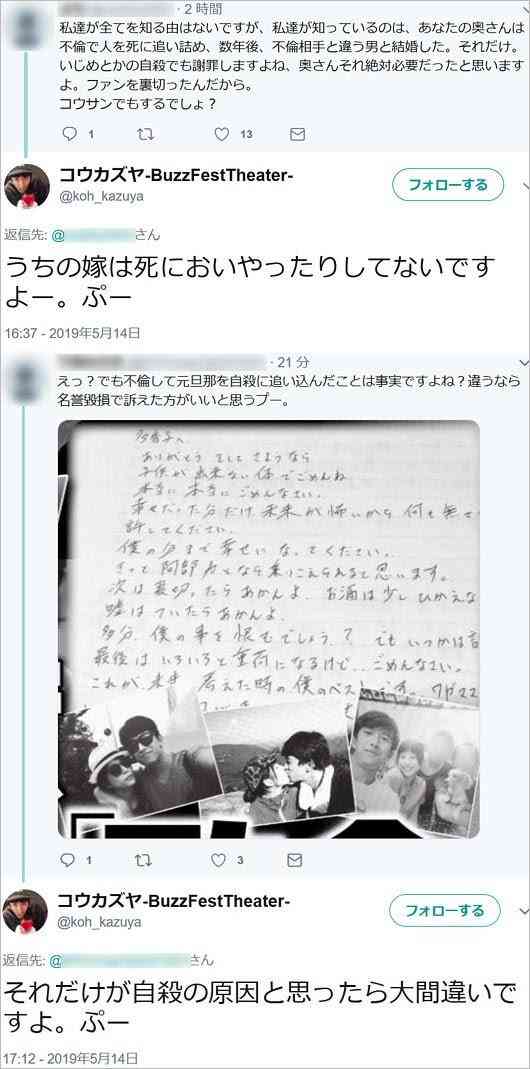 ・2 時間
私達が全てを知る由はないですが、私達が知っているのは、あなたの奥さんは
不倫で人を死に追い詰め、数年後、不倫相手と違う男と結婚した。それだけ。
いじめとかの自殺でも謝罪しますよね、奥さんそれ絶対必要だったと思います
よ。ファンを裏切ったんだから。
コウサンでもするでしょ？
1 13
コウカズヤ-BuzzFestTheater-
@koh_kazuya
フォローする
返信先: @ さん
うちの嫁は死においやったりしてないです
よー。ぷー
16:37 - 2019年5月14日
・21 分
えっ？でも不倫して元旦那を自殺に追い込んだことは事実ですよね？違うなら
名誉毀損で訴えた方がいいと思うプー。
多香子へ
ありがとう そして さようなら
子供が出来ない体でごめんね
本当に 本当に ごめんなさい。
幸せだった分だけ 未来が怖いから 何も
許してください。
僕の分まで幸せになってください。
きっと 阿部 となら乗りこえられると思います。
次は裏切ったらあかんよ お酒は少しひかえな
嘘はついたらあかんよ
多分、僕の事を恨むでしょう? でも いつかは
最後は いろいろと重荷になるけど... ごめんなさい。
これが、未来 考えた時の僕のベスト
1 3
コウカズヤ-BuzzFestTheater-
@koh_kazuya
フォローする
返信先: @ さん
それだけが自殺の原因と思ったら大間違いで
すよ。ぷー
17:12 - 2019年5月14日